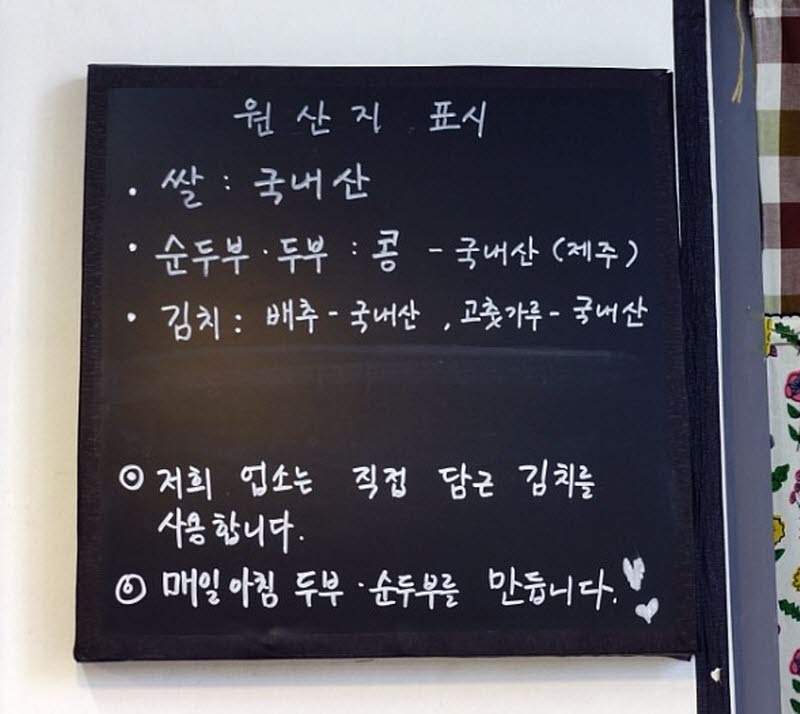 원산지 표시
· 쌀 : 국내산
· 순두부 · 두부 : 콩 - 국내산 (제주)
· 김치 : 배추 - 국내산 , 고춧가루 - 국내산
◎ 저희 업소는 직접 담근 김치를
사용합니다.
◎ 매일아침 두부 · 순두부를 만듭니다.